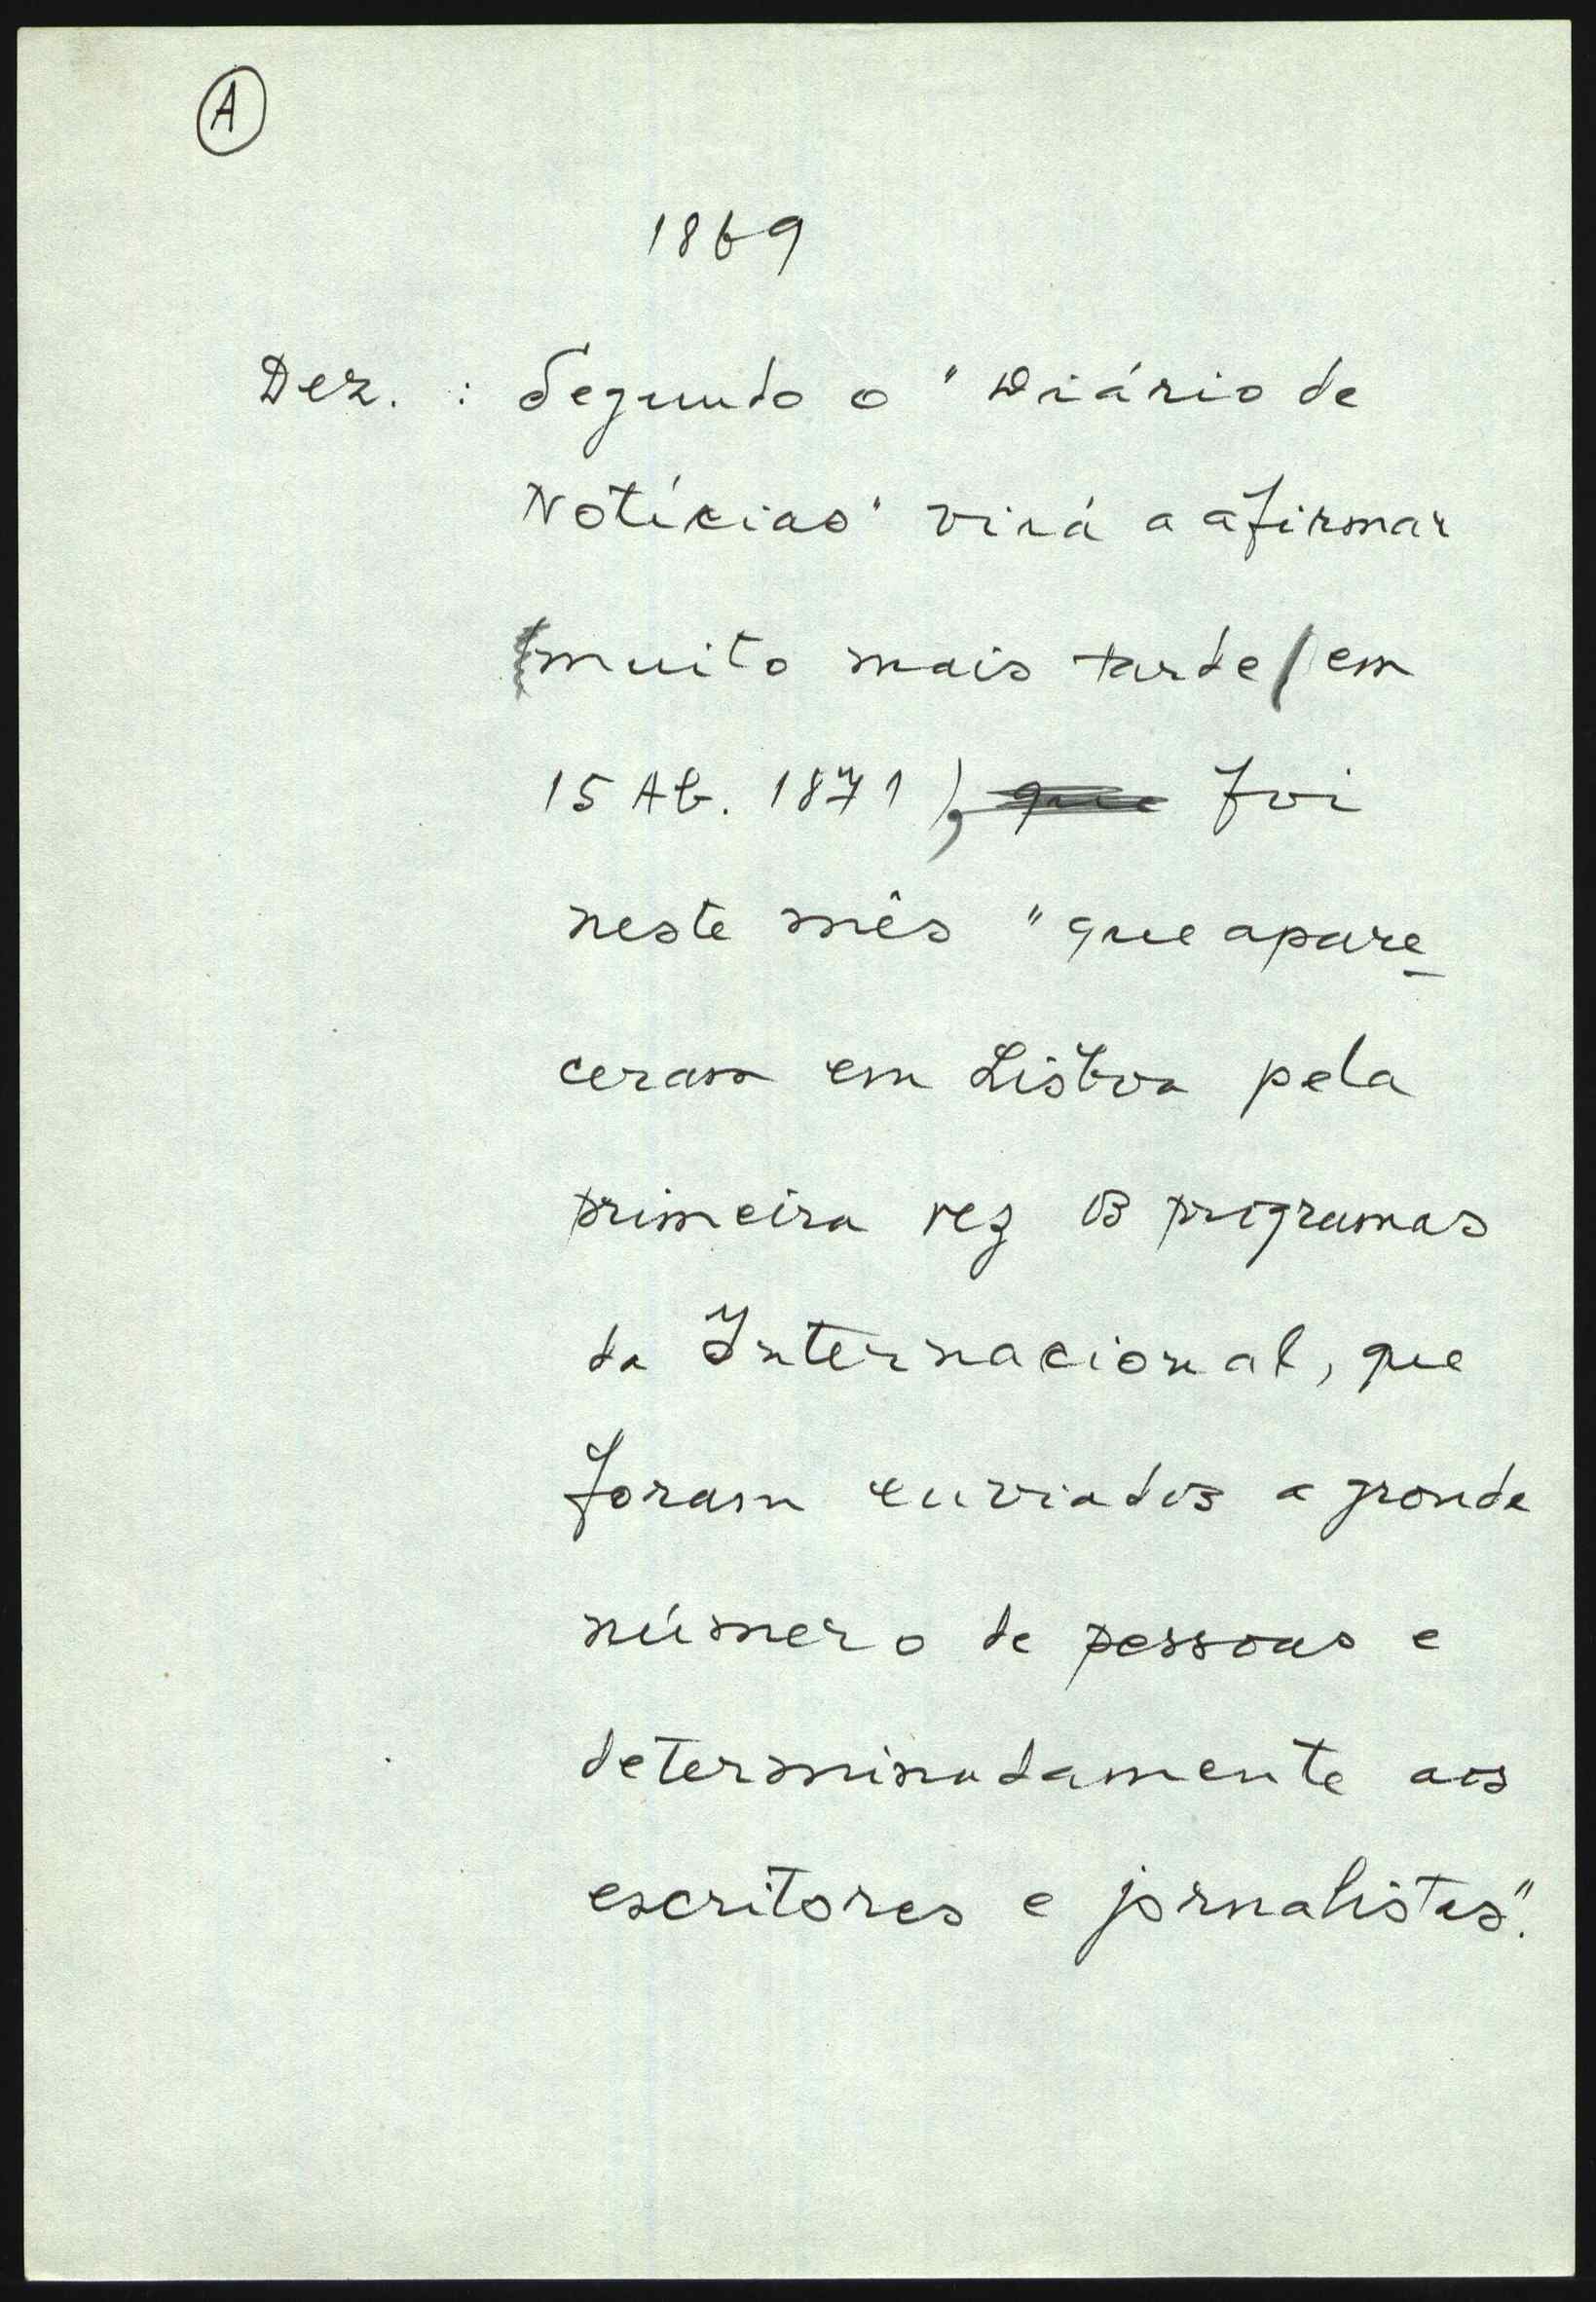 A
1869
Dez. : Segundo o "Diário de
Notícias" virá a afirmar
muito mais tarde (em
15 Ab. 1871), que foi
neste mês "que apare
ceram em Lisboa pela
primeira vez os programas
da Internacional, que
foram enviados a grande
número de pessoas e
determinadamente aos
escritores e jornalistas".